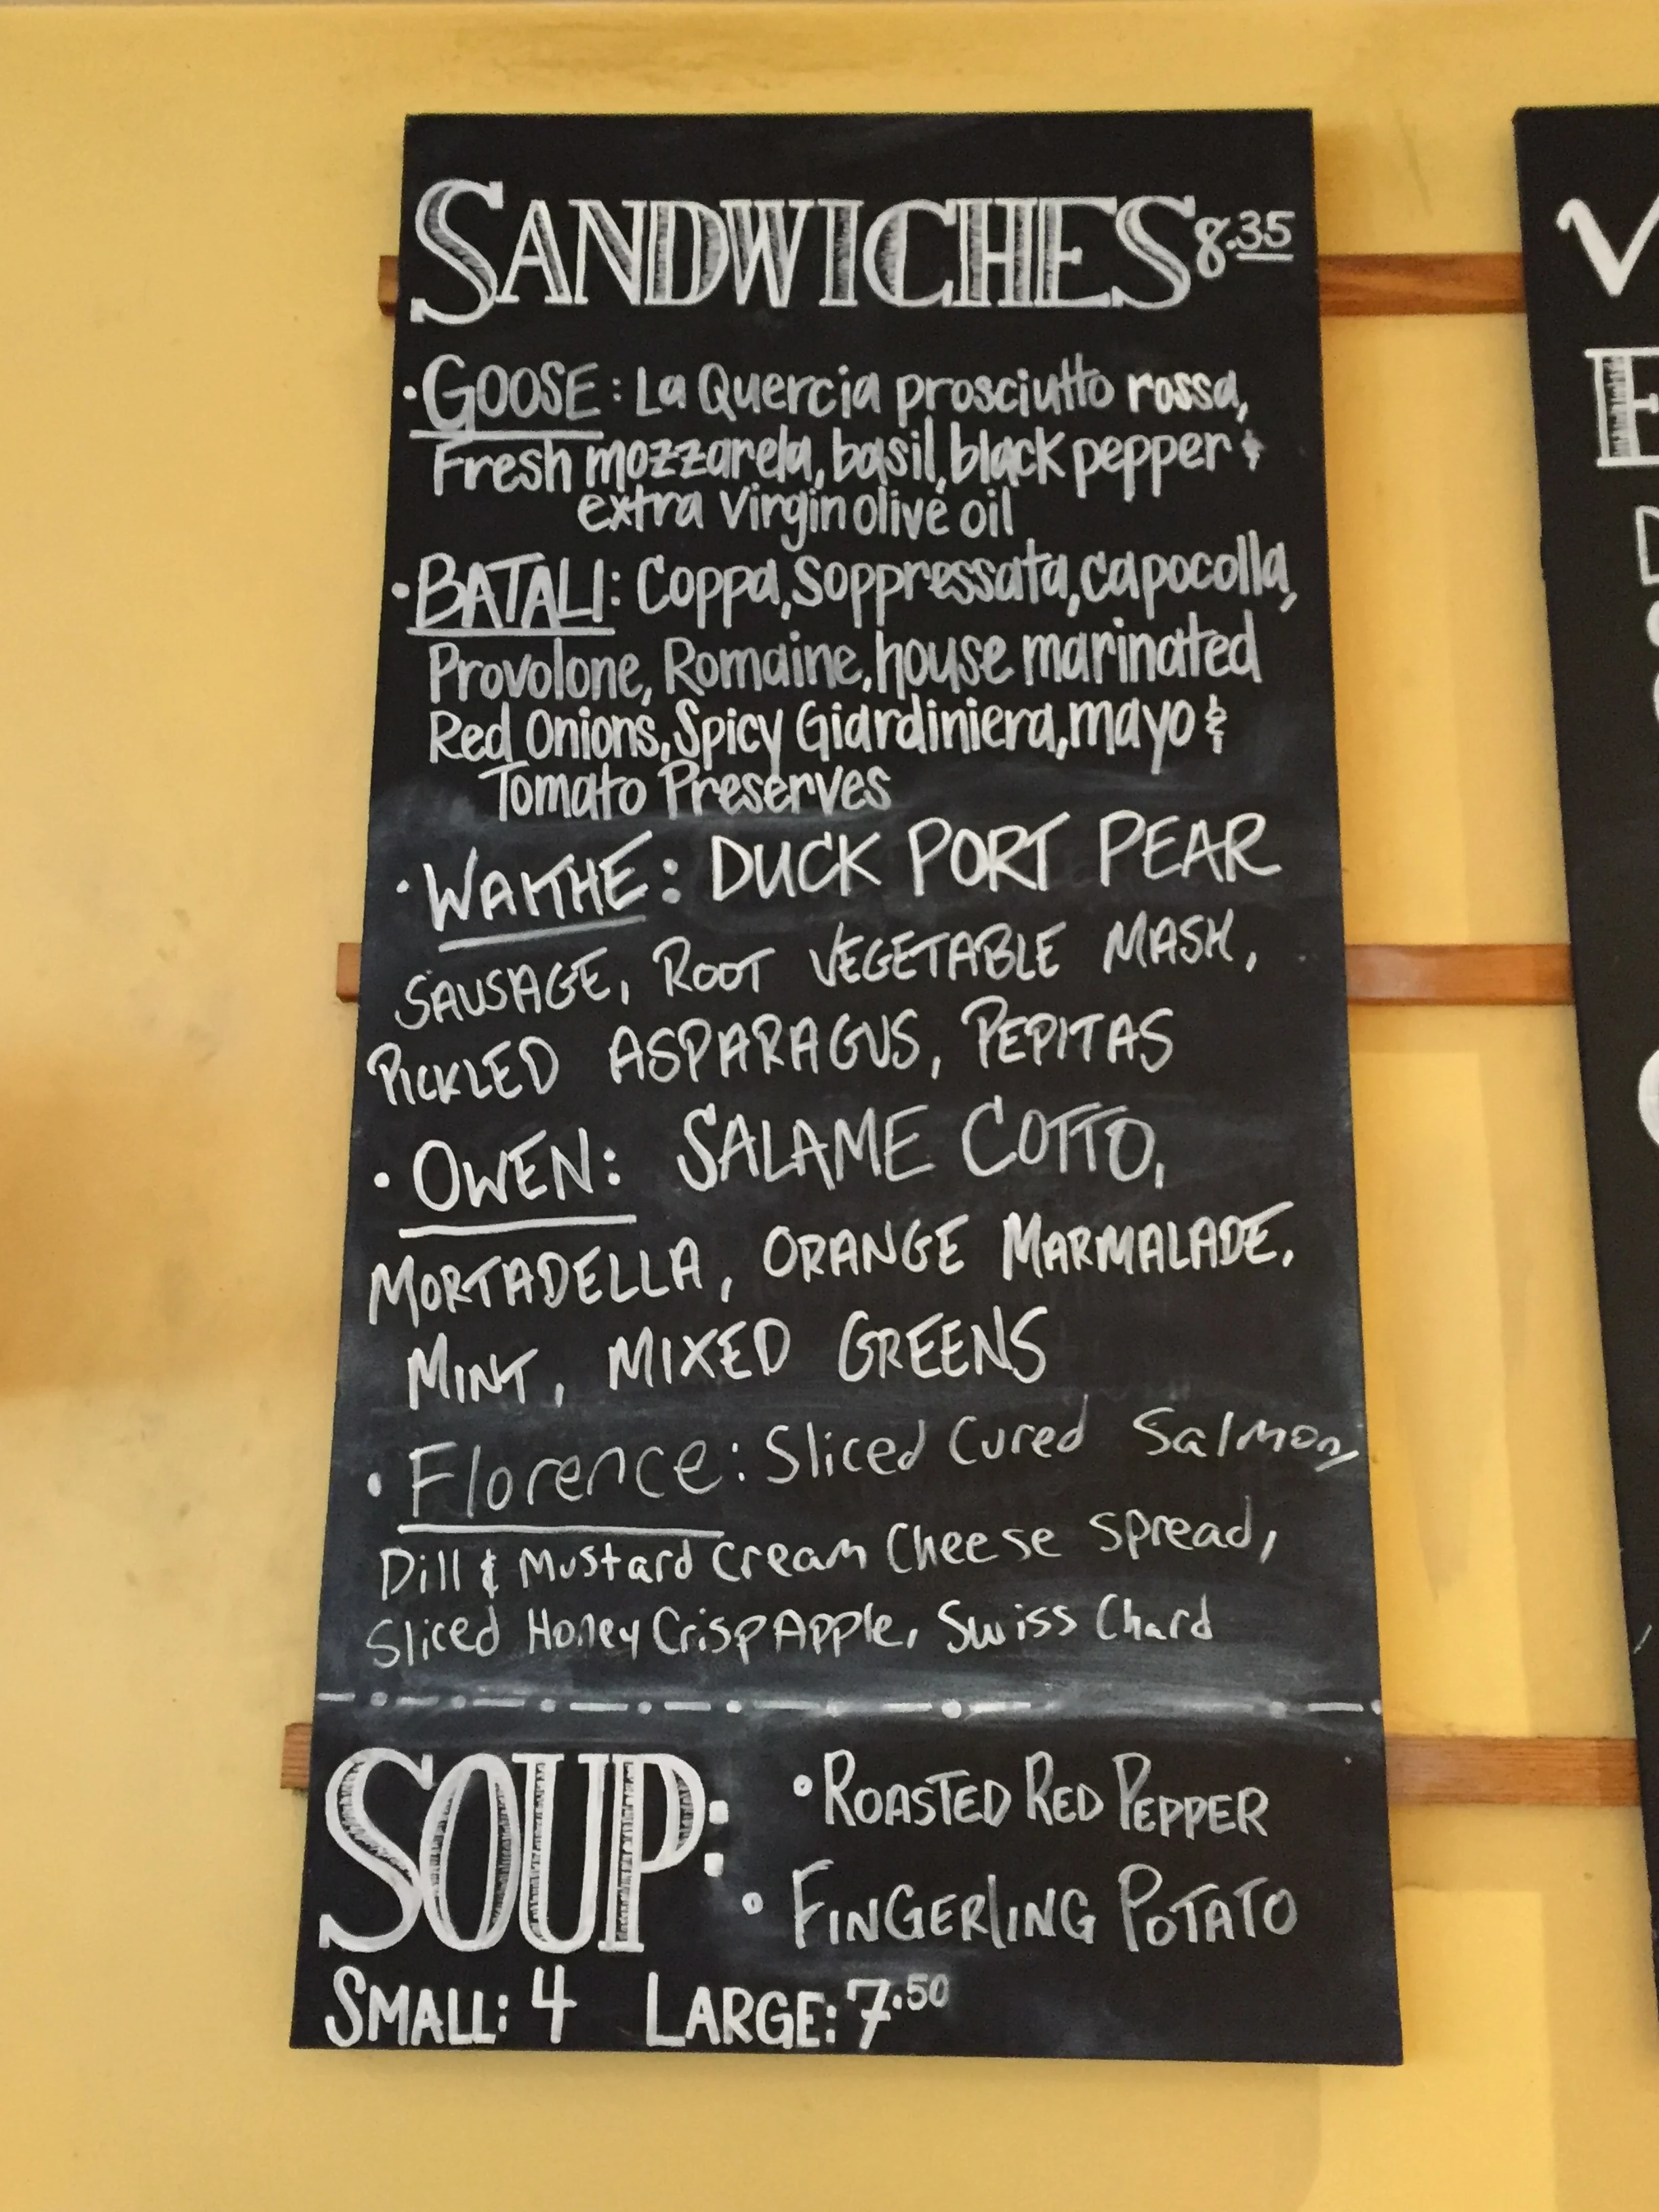 SANDWICHES 8.35
· GOOSE: La Quercia prosciutto rossa,
Fresh mozzarela, basil, black pepper &
extra virgin olive oil
· BATALI: Coppa, Soppressata, capocolla,
Provolone, Romaine, house marinated
Red Onions, Spicy Giardiniera, mayo &
Tomato Preserves
· WAKTHE: DUCK PORT PEAR
SAUSAGE, ROOT VEGETABLE MASH,
PICKLED ASPARAGUS, PEPITAS
· OWEN: SALAME COTTO,
MORTADELLA, ORANGE MARMALADE,
MINT, MIXED GREENS
· Florence: Sliced Cured Salmon,
Dill & Mustard Cream Cheese Spread,
Sliced Honey Crisp Apple, Swiss Chard
SOUP: • ROASTED RED PEPPER
• FINGERLING POTATO
SMALL: 4 LARGE: 7.50